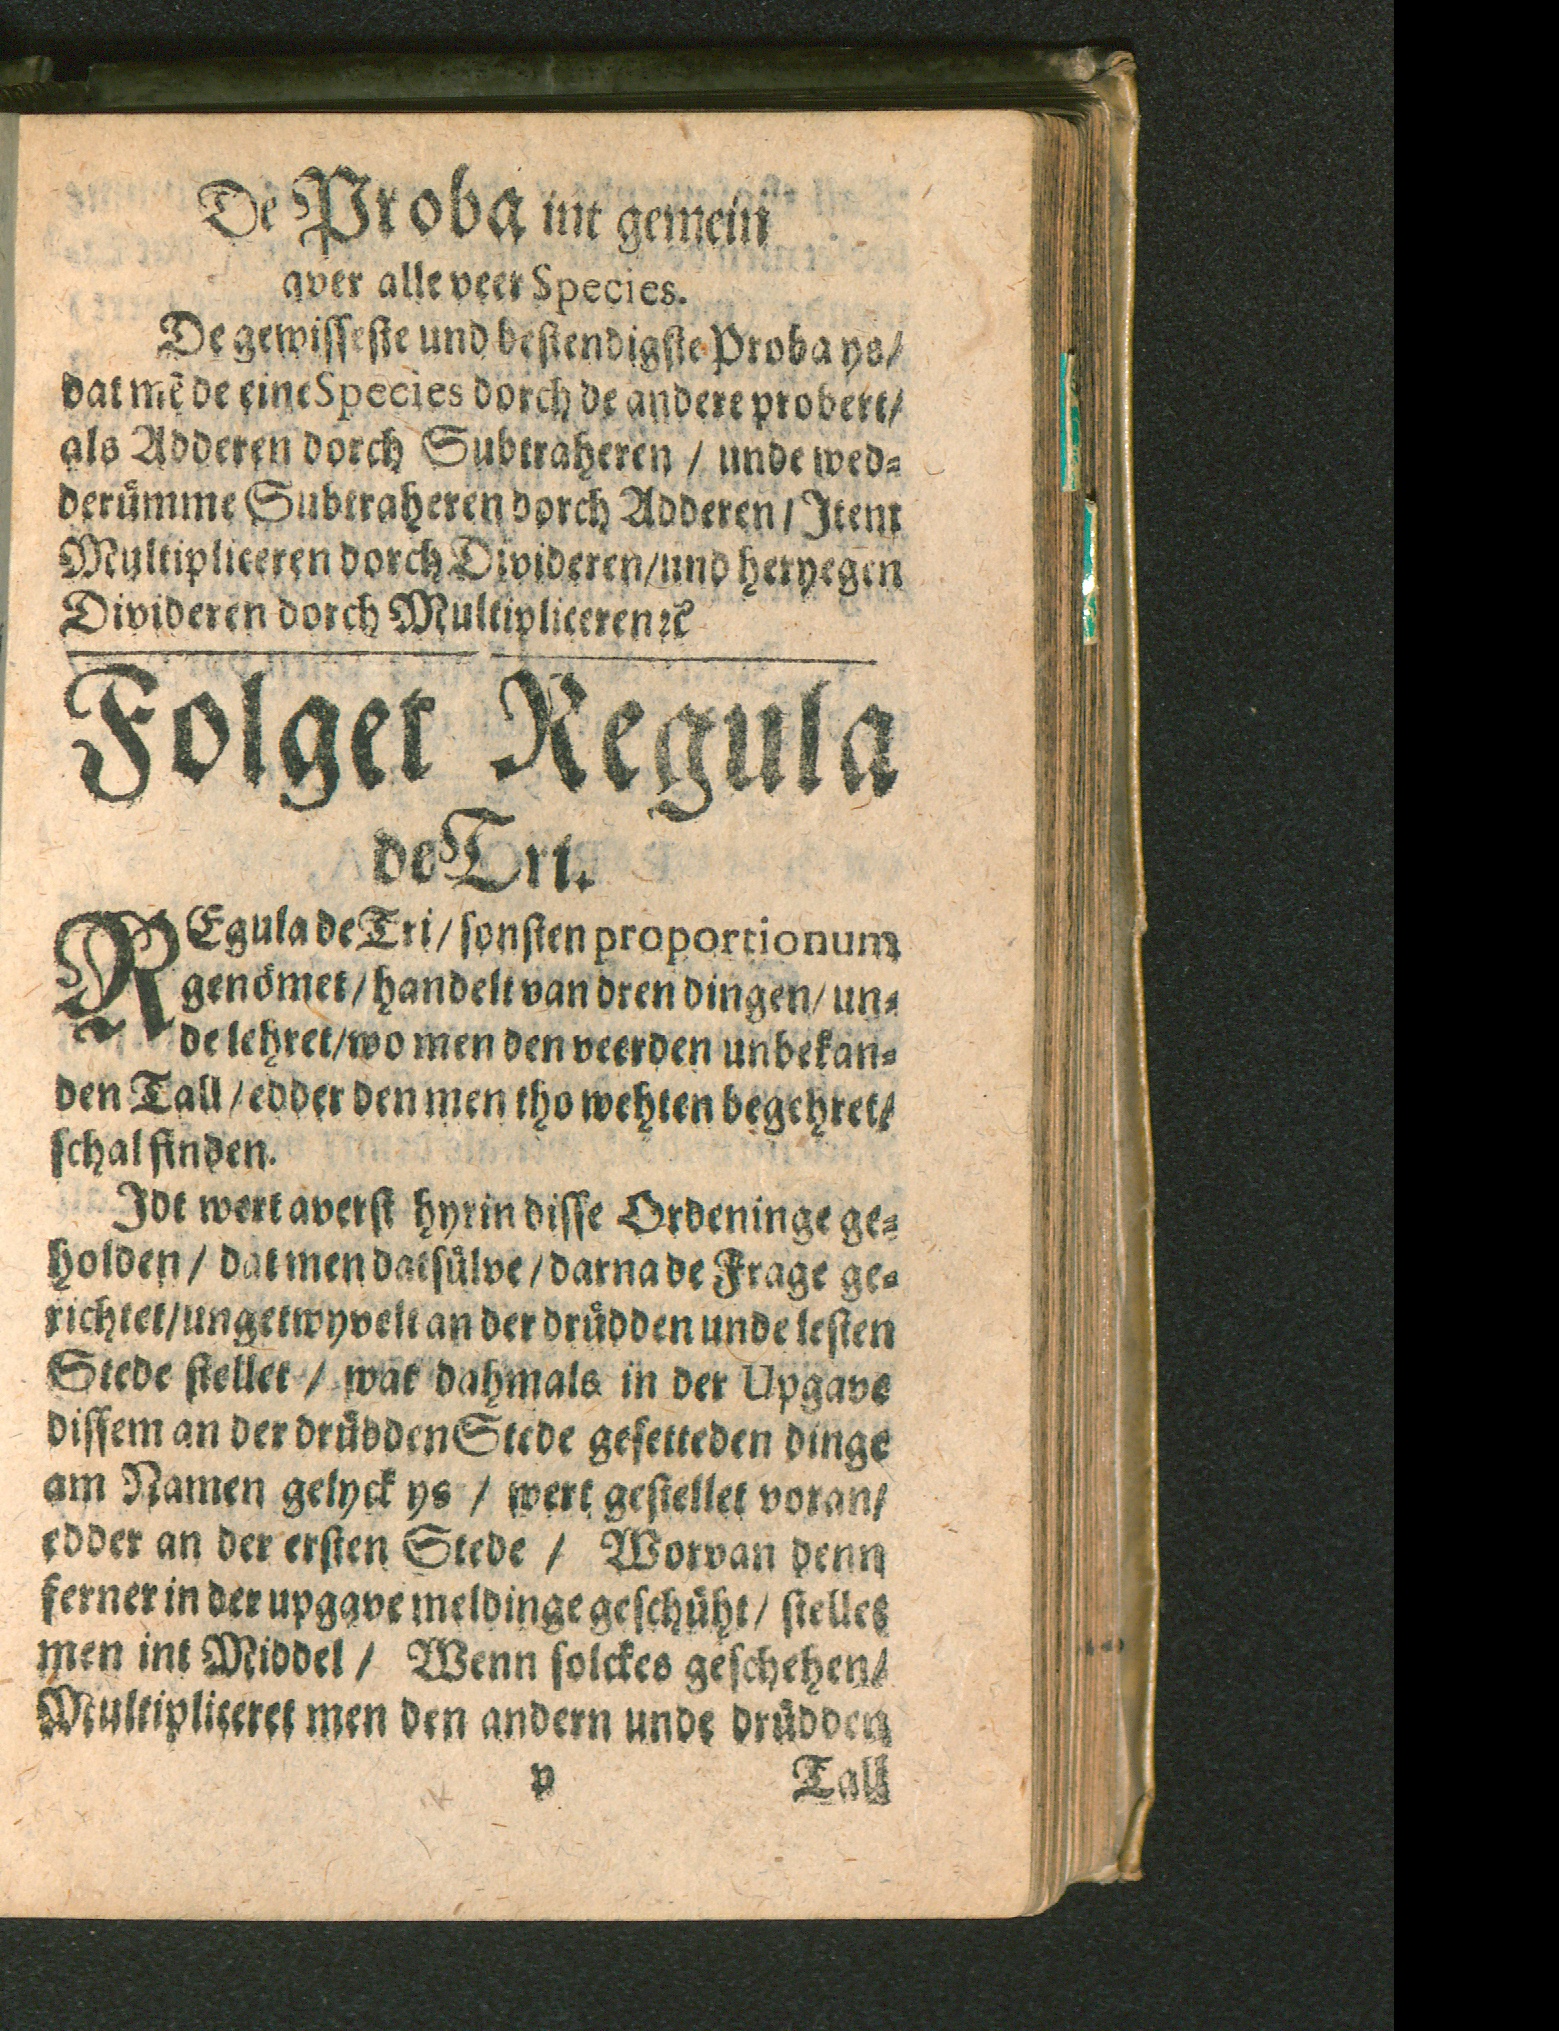 De Proba int gemein
aver alle veer Species.
De gewisseste und bestendigste Proba ys/
dat mē de eine Species dorch de andere probert/
als Adderen dorch Subtraheren / unde wed-
derümme Subtraheren dorch Adderen / Item
Multipliceren dorch Divideren/und heryegen
Divideren dorch Multipliceren ꝛc
Folget Regula
de Tri.
REgula de Tri / sonsten proportionum
genömet / handelt van dren dingen / un-
de lehret/wo men den veerden unbekan-
den Tall / edder den men tho wehten begehret/
schal finden.
Idt wert averst hyrin disse Ordeninge ge-
holden / dat men datsülve / darna de Frage ge-
richtet/ungetwyvelt an der drüdden unde lesten
Stede stellet / wat dahmals in der Upgave
dissem an der drüdden Stede gesetteden dinge
am Namen gelyck ys / wert gestellet voran/
edder an der ersten Stede / Worvan denn
ferner in der upgave meldinge geschüht / stelles
men int Middel / Wenn solckes geschehen/
Multipliceret men den andern unde drüdden
v Tall